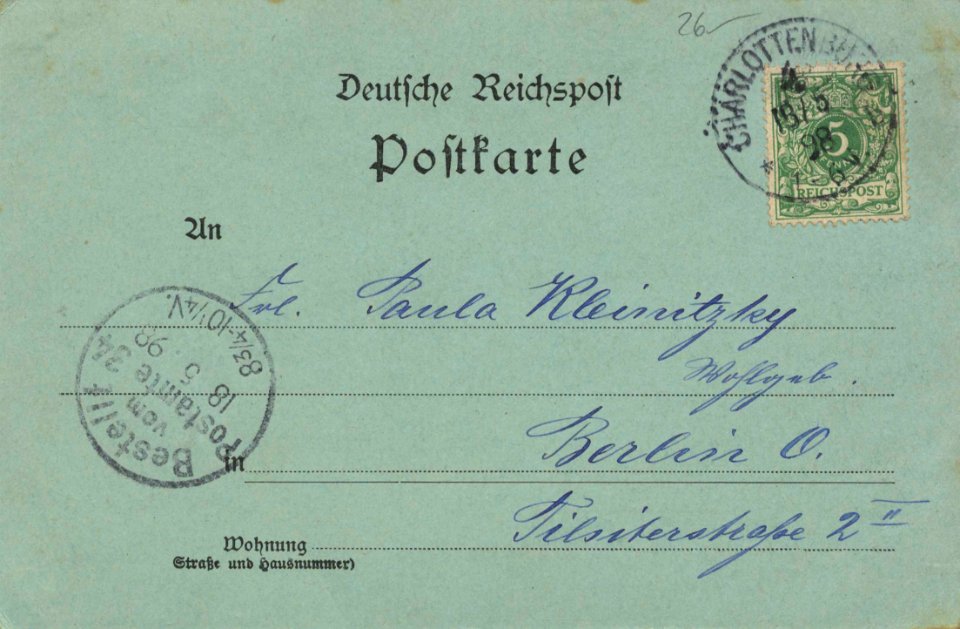 26.-
Deutsche Reichspost
Postkarte
CHARLOTTENBURG
18/5
98
5
REICHSPOST
An
Frl. Paula Kleinitzky
Wohlgeb.
in Berlin O.
Tilsiterstraße 2 II
Wohnung
Straße und Hausnummer)
Bestellt
vom
Postamte 34
18 5. 98
8¾-10¼V.